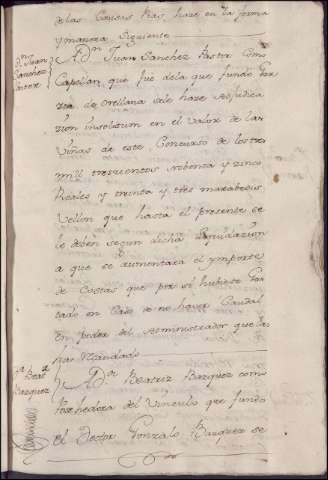 de las Causas Ray, hace en la forma
y manera Siguiente
Dn. Juan Sanchez Pastor
A Dn. Juan Sanchez Pastor Como
Capellan, que fue de la que fundo
de Orellana se le hace Adjudica
zion insolutum en el Valor de las
Viñas de este Concurso de los tres
mill trescientos ochenta y zinco
Reales y treinta y tres maravedis
Vellon que hasta el presente se
le deben segun dicha liquidazion
a que se aumentara el ymporte
de Costas que por si hubiese
en Caso de no haver Caudal
en poder del Administrador que las
haia Mandado
Da. Beatz. Bazquez
A Da. Beatriz Bazquez como
Poshedora del Vinculo que fundo
el Doctor Gonzalo Bazquez se